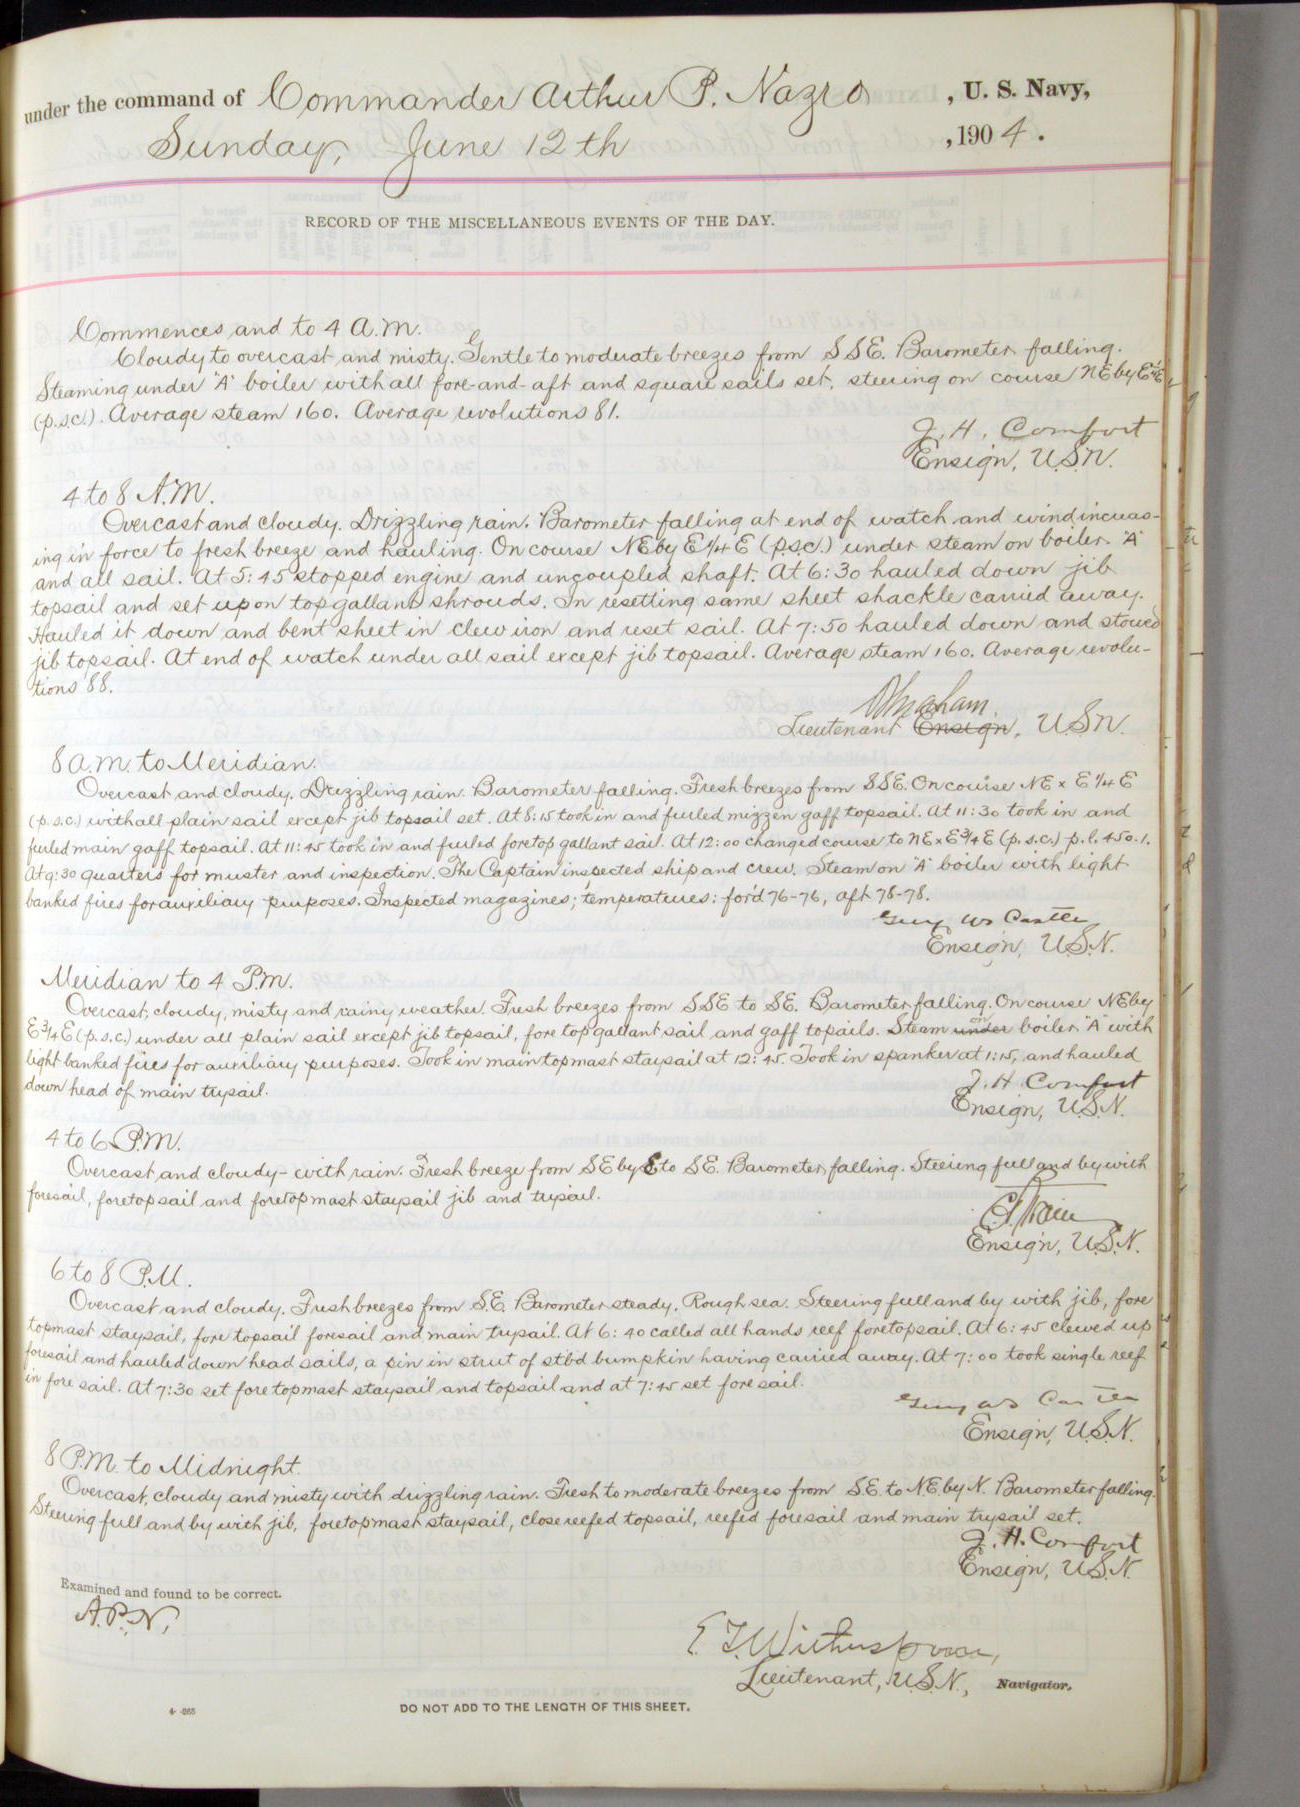 under the command of Commander Arthur P. Nazro, U. S. Navy,
Sunday, June 12th, 1904.
RECORD OF THE MISCELLANEOUS EVENTS OF THE DAY.
Commences and to 4 A.M.
Cloudy to overcast and misty. Gentle to moderate breezes from SSE. Barometer falling.
Steaming under "A" boiler with all fore-and-aft and square sails set, steering on course NE by E 1/4 E
(p.s.c.). Average steam 160. Average revolutions 81.
J. H. Comfort
Ensign, U.S.N.
4 to 8 A.M.
Overcast and cloudy. Drizzling rain. Barometer falling at end of watch and wind increas-
ing in force to fresh breeze and hauling. On course NE by E 1/4 E (p.s.c.) under steam on boiler "A"
and all sail. At 5:45 stopped engine and uncoupled shaft. At 6:30 hauled down jib
topsail and set up on topgallant shrouds. In resetting same sheet shackle carried away.
Hauled it down and bent sheet in clew iron and reset sail. At 7:50 hauled down and stowed
jib topsail. At end of watch under all sail except jib topsail. Average steam 160. Average revolu-
tions 88.
Lieutenant Ensign, U.S.N.
8 a.m. to Meridian.
Overcast and cloudy. Drizzling rain. Barometer falling. Fresh breezes from SSE. On course NE x E 1/4 E
(p.s.c.) with all plain sail except jib topsail set. At 8:15 took in and furled mizzen gaff topsail. At 11:30 took in and
furled main gaff topsail. At 11:45 took in and furled foretop gallant sail. At 12:00 changed course to NE x E 3/4 E (p.s.c.) p.l. 450.1.
At 9:30 quarters for muster and inspection. The Captain inspected ship and crew. Steam on "A" boiler with light
banked fires for auxiliary purposes. Inspected magazines; temperatures: for'd 76-76, aft 78-78.
Guy W. S. Castle
Ensign, U.S.N.
Meridian to 4 P.m.
Overcast, cloudy, misty and rainy weather. Fresh breezes from SSE to SE. Barometer falling. On course NE by
E 3/4 E (p.s.c.) under all plain sail except jib topsail, fore topgallant sail and gaff topsails. Steam under on boiler "A" with
light banked fires for auxiliary purposes. Took in main topmast staysail at 12:45. Took in spanker at 1:15, and hauled
down head of main trysail.
J. H. Comfort
Ensign, U.S.N.
4 to 6 P.M.
Overcast and cloudy - with rain. Fresh breeze from SE by S to SE. Barometer falling. Steering full and by with
foresail, foretopsail and foretopmast staysail jib and trysail.
Ensign, U.S.N.
6 to 8 P.M.
Overcast and cloudy. Fresh breezes from S.E. Barometer steady. Rough sea. Steering full and by with jib, fore
topmast staysail, fore topsail foresail and main trysail. At 6:40 called all hands reef foretopsail. At 6:45 clewed up
foresail and hauled down head sails, a pin in strut of stbd bumpkin having carried away. At 7:00 took single reef
in fore sail. At 7:30 set fore topmast staysail and topsail and at 7:45 set fore sail.
Guy W. S. Castle
Ensign, U.S.N.
8 P.M. to Midnight.
Overcast, cloudy and misty with drizzling rain. Fresh to moderate breezes from SE. to NE by N. Barometer falling.
Steering full and by with jib, foretopmast staysail, close reefed topsail, reefed foresail and main trysail set.
J. H. Comfort
Ensign, U.S.N.
Examined and found to be correct.
A.P.N.
E. T. Witherspoon,
Lieutenant, U.S.N., Navigator.
DO NOT ADD TO THE LENGTH OF THIS SHEET.